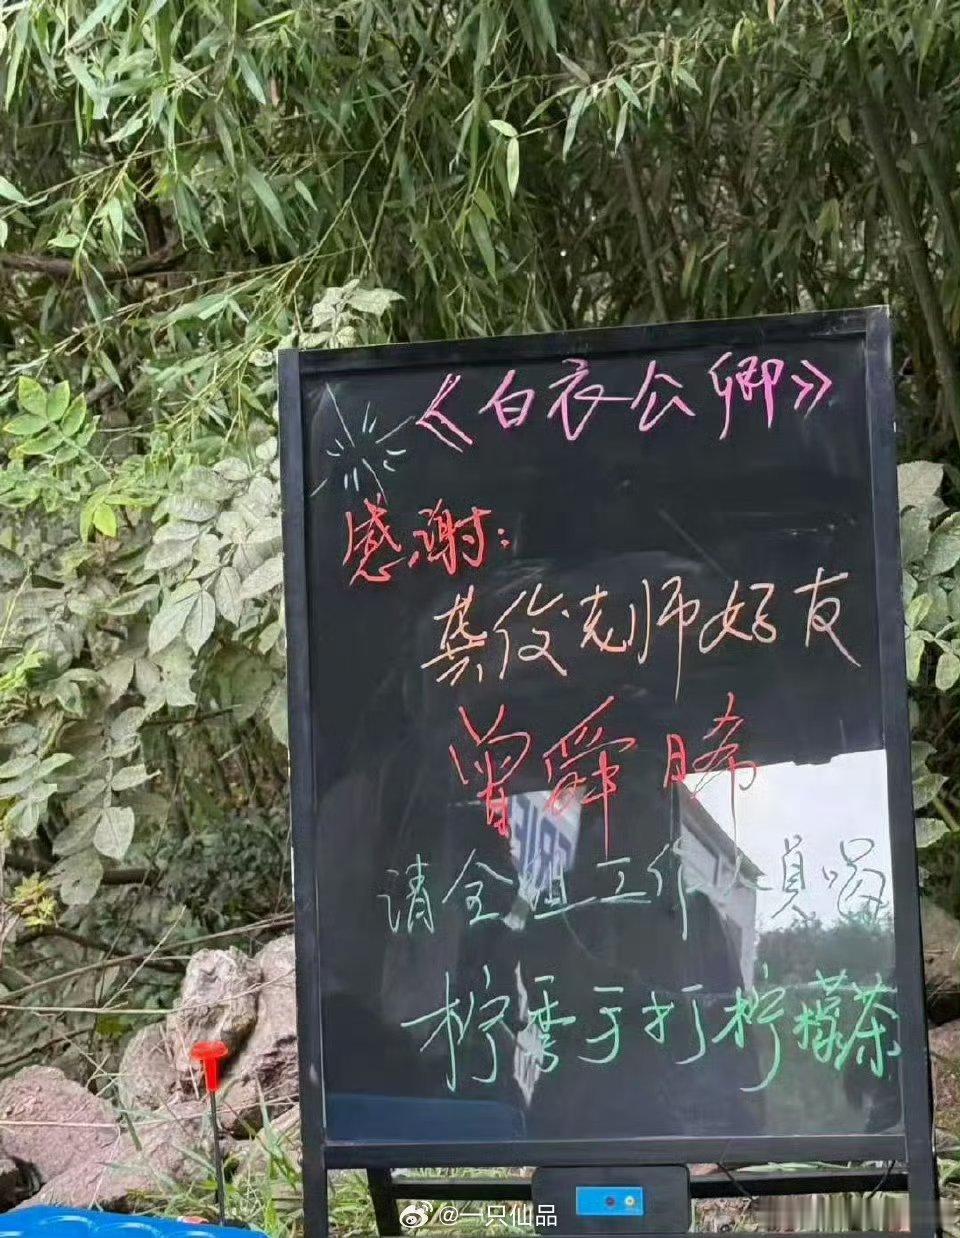 《白衣公卿》
感谢：
龚俊老师好友
曾舜晞
请全组工作人员喝
柠季手打柠檬茶
@一只仙品